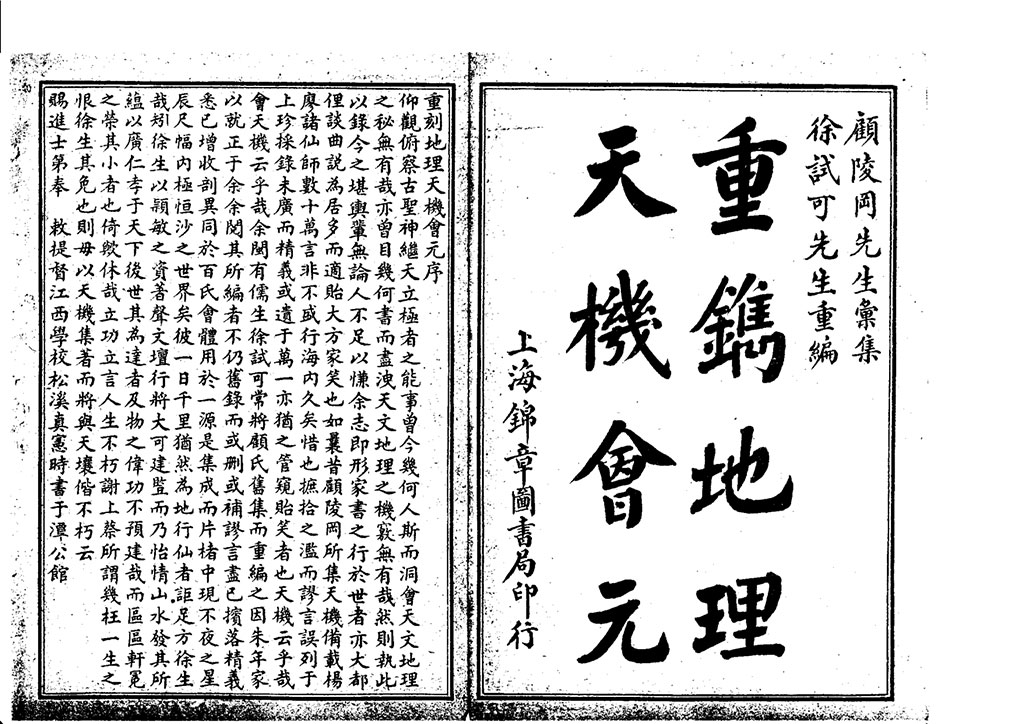 顧陵岡先生彙集
徐試可先生重編
重鐫地理
天機會元
上海錦章圖書局印行
重刻地理天機會元序
仰觀俯察古聖神繼天立極者之能事曾今幾何人斯而洞會天文地理
之秘無有哉亦曾目幾何書而盡洩天文地理之機竅無有哉然則執此
以錄今之堪輿輩無論人不足以慊余志即形家書之行於世者亦大都
俚談曲說為居多而適貽大方家笑也如曩昔顧陵岡所集天機備載楊
廖諸仙師數十萬言非不或行海內久矣惜也摭拾之濫而謬言誤列于
上珍採錄未廣而精義或遺于萬一亦猶之管窺貽笑者也天機云乎哉
會天機云乎哉余聞有儒生徐試可常將顧氏舊集而重編之因朱年家
以就正于余余閱其所編者不仍舊錄而或删或補謬言盡已擯落精義
悉已增收剖異同於百氏會體用於一源是集成而片楮中現不夜之星
辰尺幅內極恒沙之世界矣彼一日千里猶然為地行仙者詎足方徐生
哉矧徐生以穎敏之資著聲文壇行將大可建豎而乃怡情山水發其所
蘊以廣仁孝于天下後世其為達者及物之偉功不預建哉而區區軒冕
之榮其小者也倚歟休哉立功立言人生不朽謝上蔡所謂幾枉一生之
恨徐生其免也則毋以天機集著而將與天壤偕不朽云
賜進士第奉　敕提督江西學校松溪真憲時書于潭公館